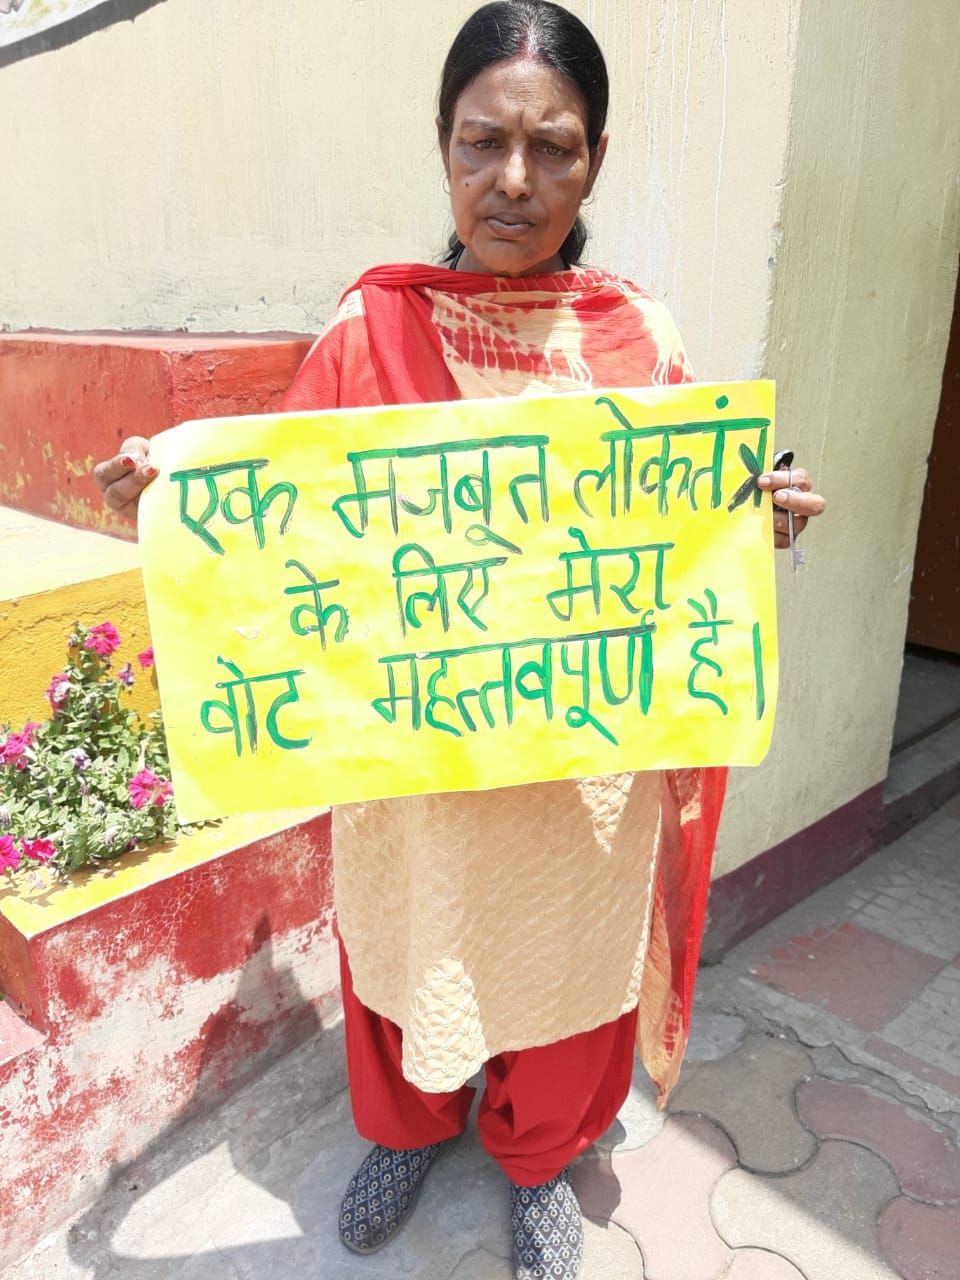 एक मजबूत लोकतंत्र
के लिए मेरा
वोट महत्तवपूर्ण है।